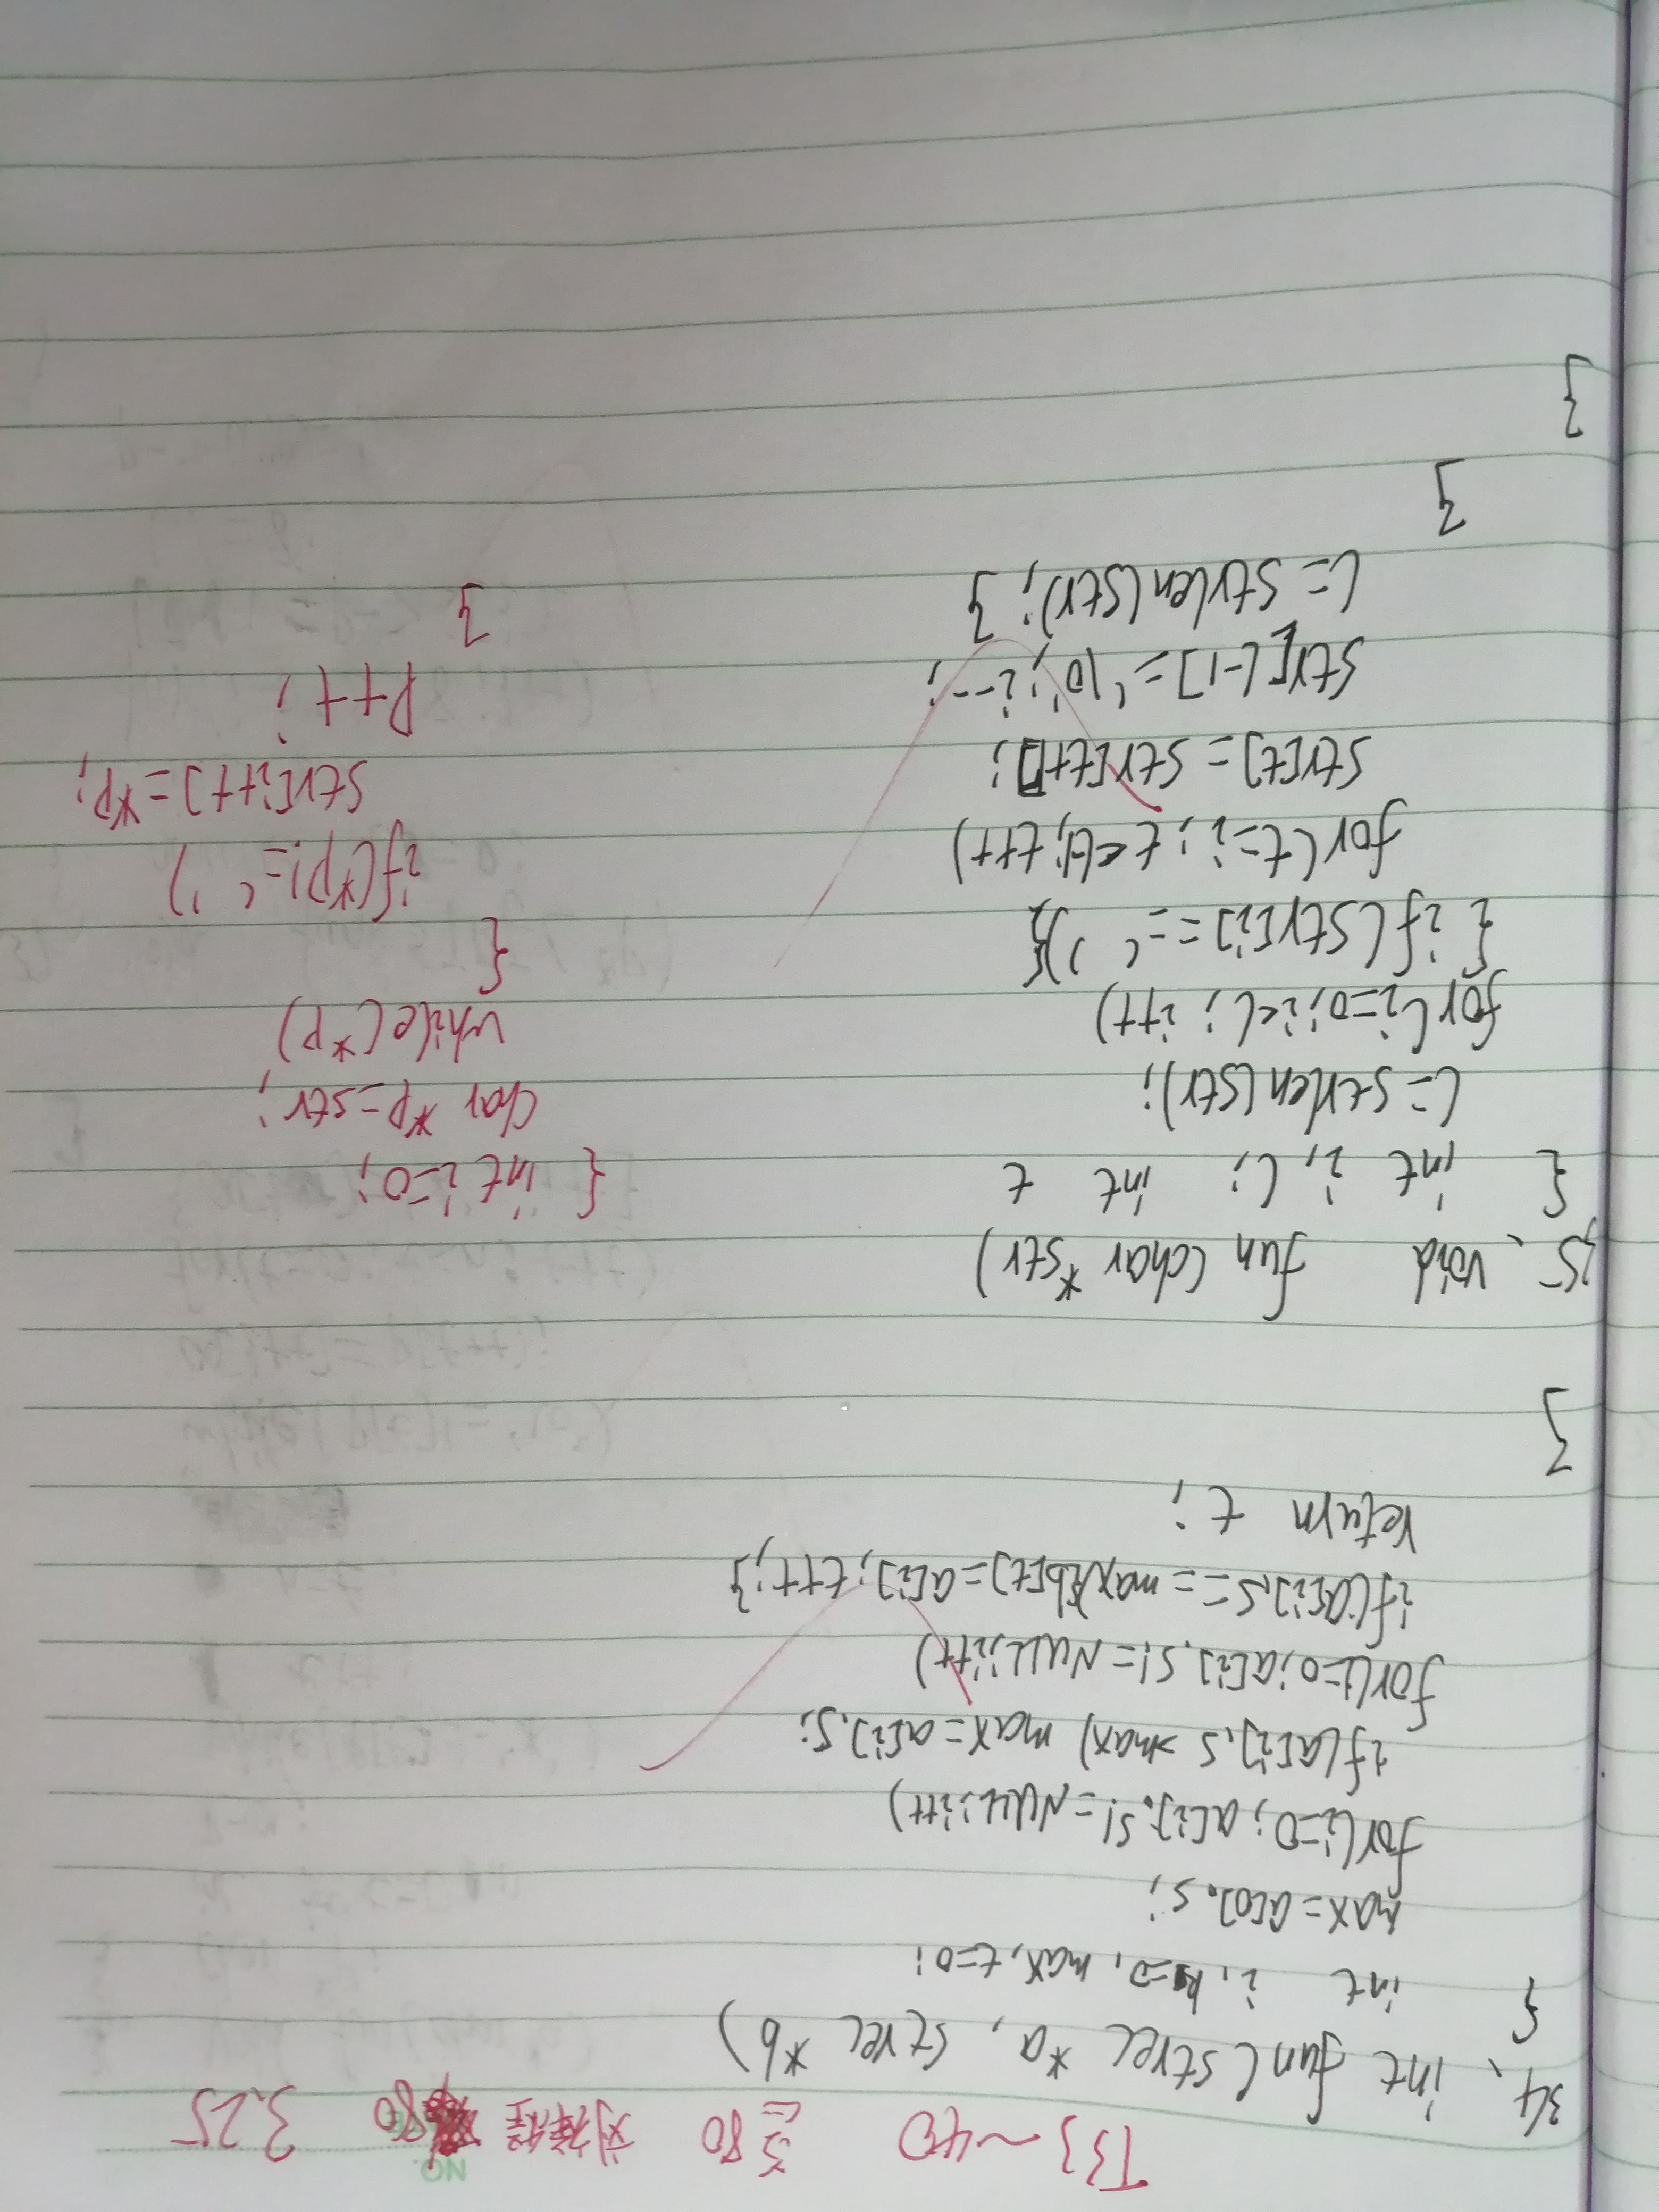 NO.
T33~40 三80 刘祥程 80 3.25
34、 int fun(strec *a, strec *b)
{
int i, k=0, max, t=0;
max=a[0].s;
for(i=0; a[i].s!=NULL;i++)
if(a[i].s>max) max=a[i].s;
for(i=0;a[i].s!=NULL;i++)
if(a[i].s==max){b[t]=a[i];t++;}
return t;
}
35、 void fun(char *str)
{ int i, l; int t
l=strlen(str);
for(i=0;i<l; i++)
{ if(str[i]==' '){
for(t=i; t<l-1; t++)
str[t]=str[t+1];
str[l-1]='\0'; i--;
l=strlen(str); }
}
}
{ int i=0;
char *p=str;
while(*p)
{
if(*p!=' ')
str[i++]=*p;
p++;
}